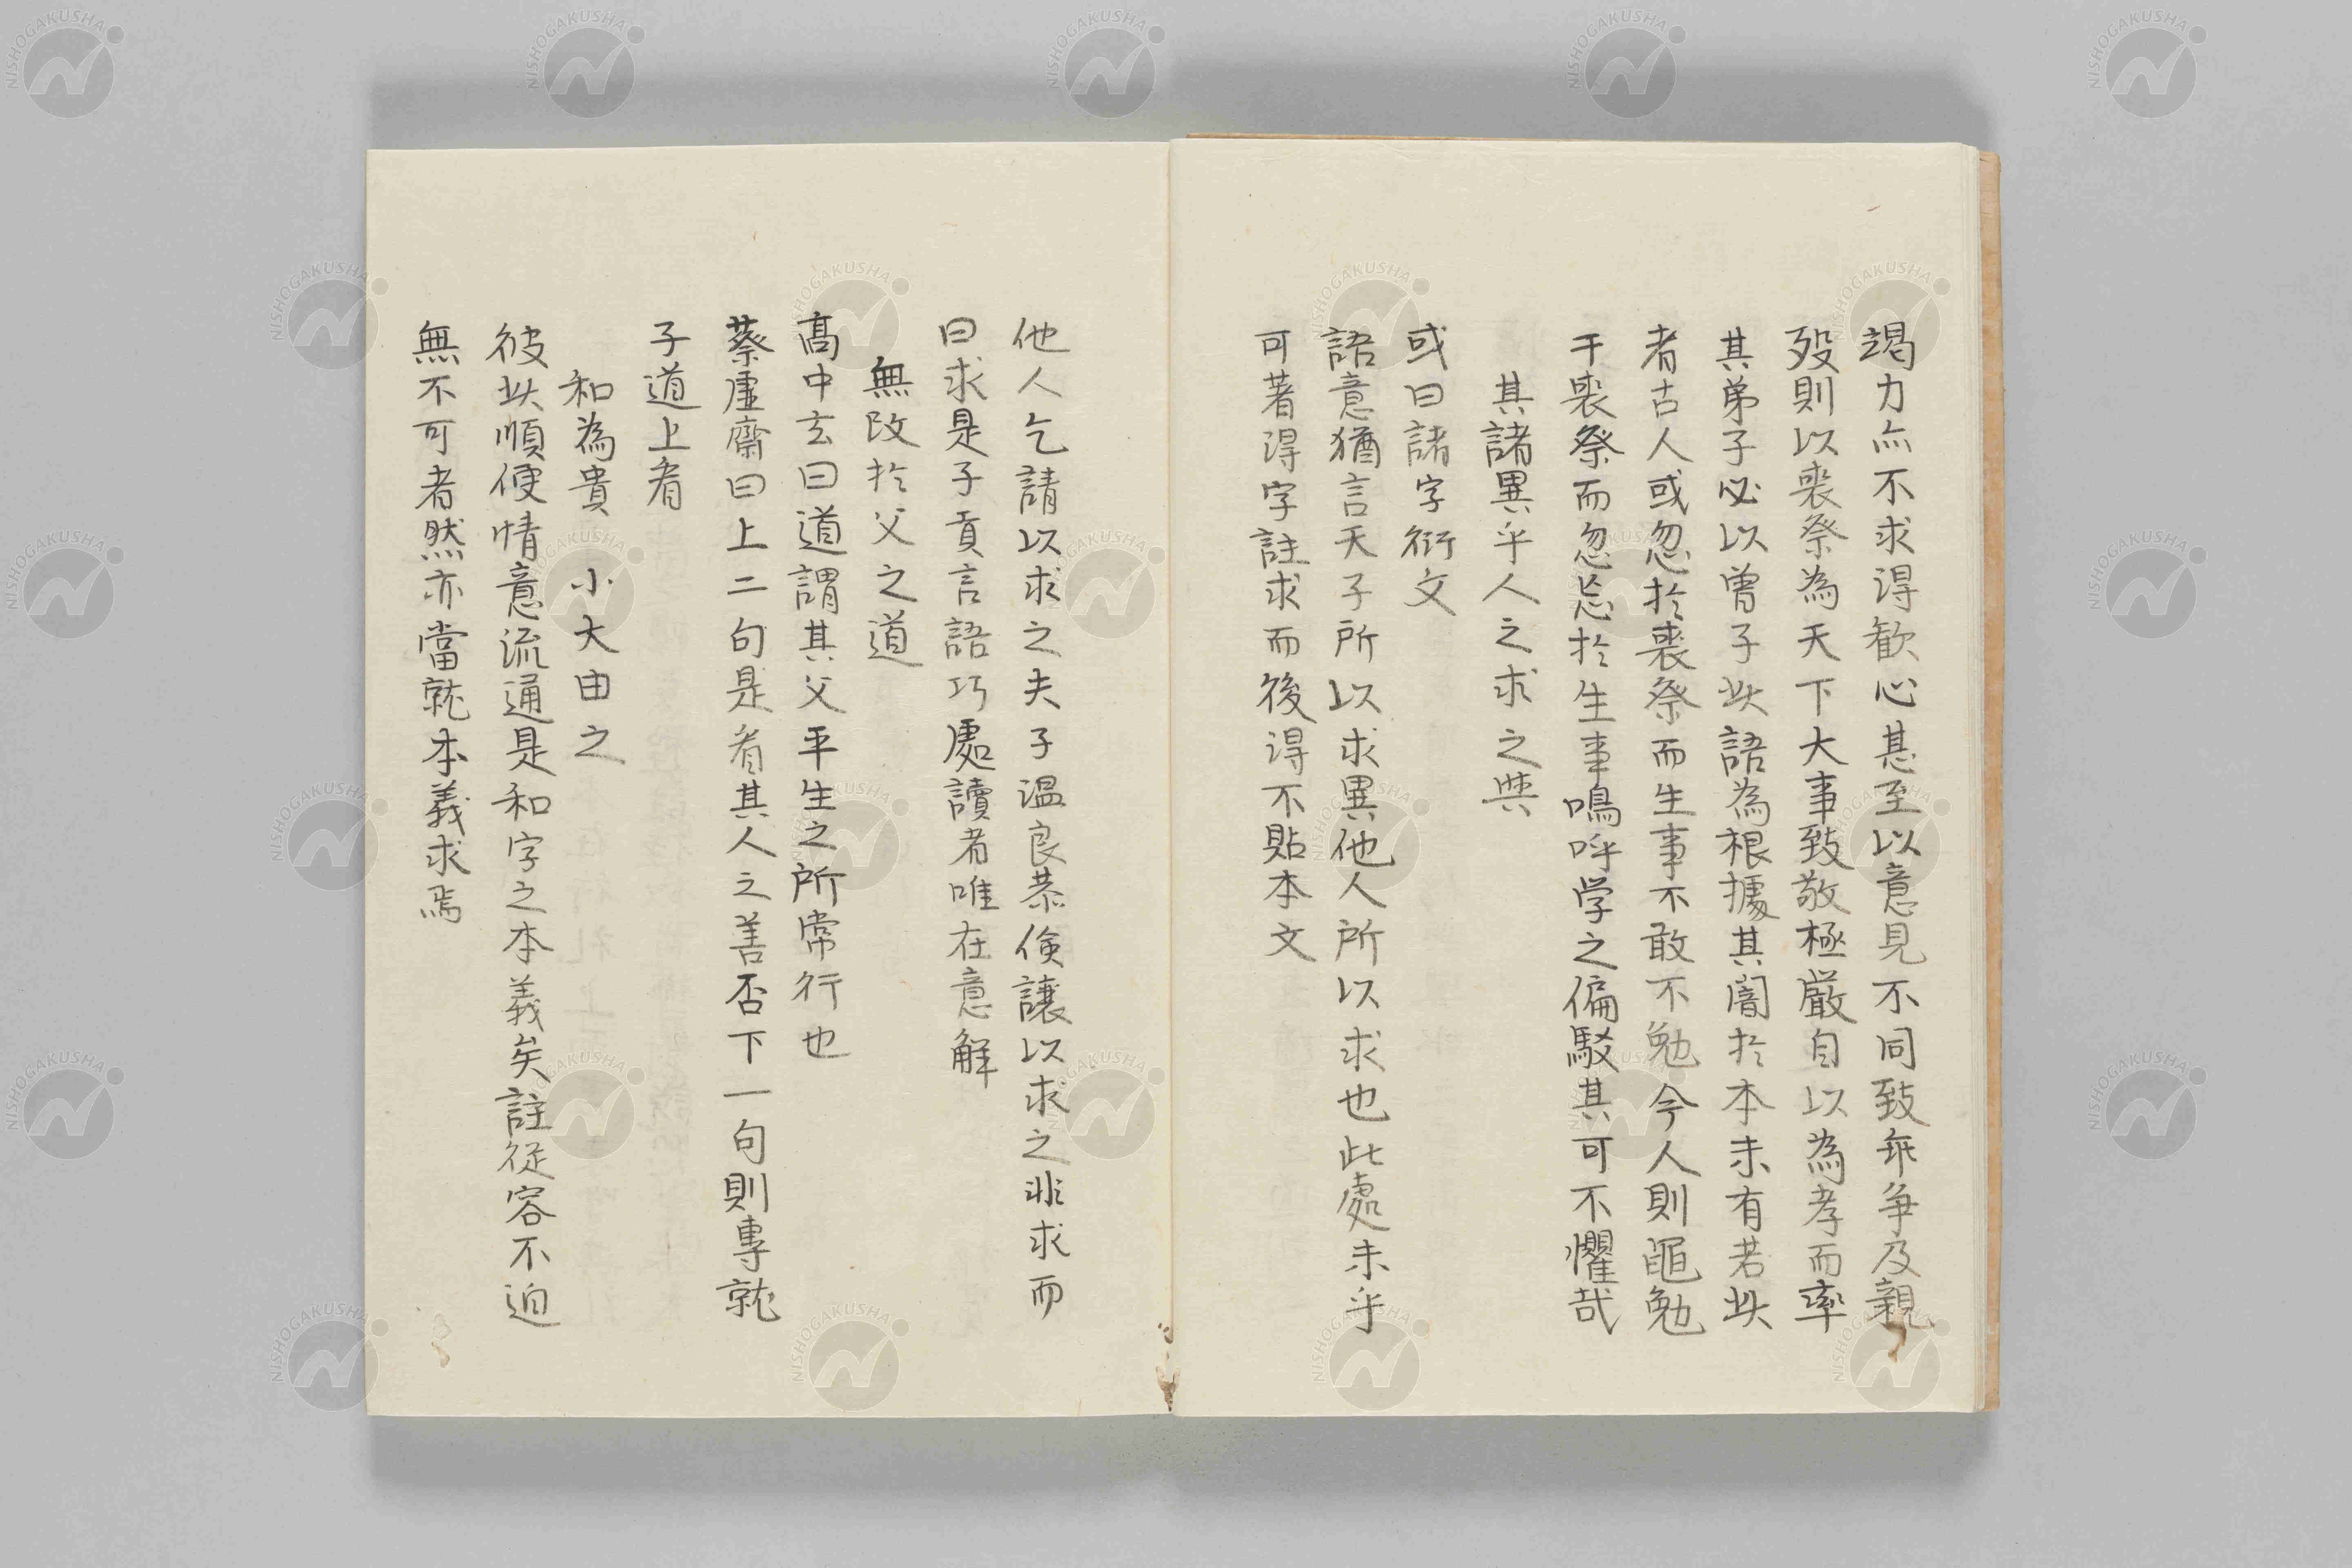 竭力亦不求得歓心甚至以意見不同致乖争及親
歿則以喪祭為天下大事致敬極厳自以為孝而率
其弟子必以曽子此語為根據其闇於本未有若此
者古人或忽於喪祭而生事不敢不勉今人則黽勉
于喪祭而忽忘於生事嗚呼学之偏駁其可不懼哉
其諸異乎人之求之與
或曰諸字衍文
語意猶言夫子所以求異他人所以求也此處未乎
可著得字註求而後得不貼本文
他人乞請以求之夫子温良恭倹譲以求之非求而
曰求是子貢言語巧處讀者唯在意解
無改於父之道
髙中玄曰道謂其父平生之所常行也
蔡虚齋曰上二句是看其人之善否下一句則專就
子道上看
和為貴 小大由之
彼此順便情意流通是和字之本義矣註従容不迫
無不可者然亦當就本義求焉
NISHOGAKUSHA